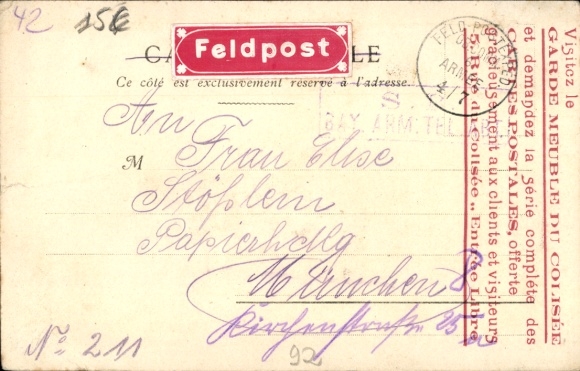 42
15€
Feldpost
Ce côté est exclusivement réservé à l'adresse.
FELD-POST
ARMEE
4/7
S.
BAY. ARM. TEL.
An
M Frau Elise
Stößlein
Papierhdlg
München 8
Kirchenstraße 25
No 211
92
Visitez le
GARDE MEUBLE DU COLISÉE
et demandez la Série complète des
CARTES POSTALES, offerte
gracieusement aux clients et visiteurs
5, Rue du Colisée „ Entrée Libre